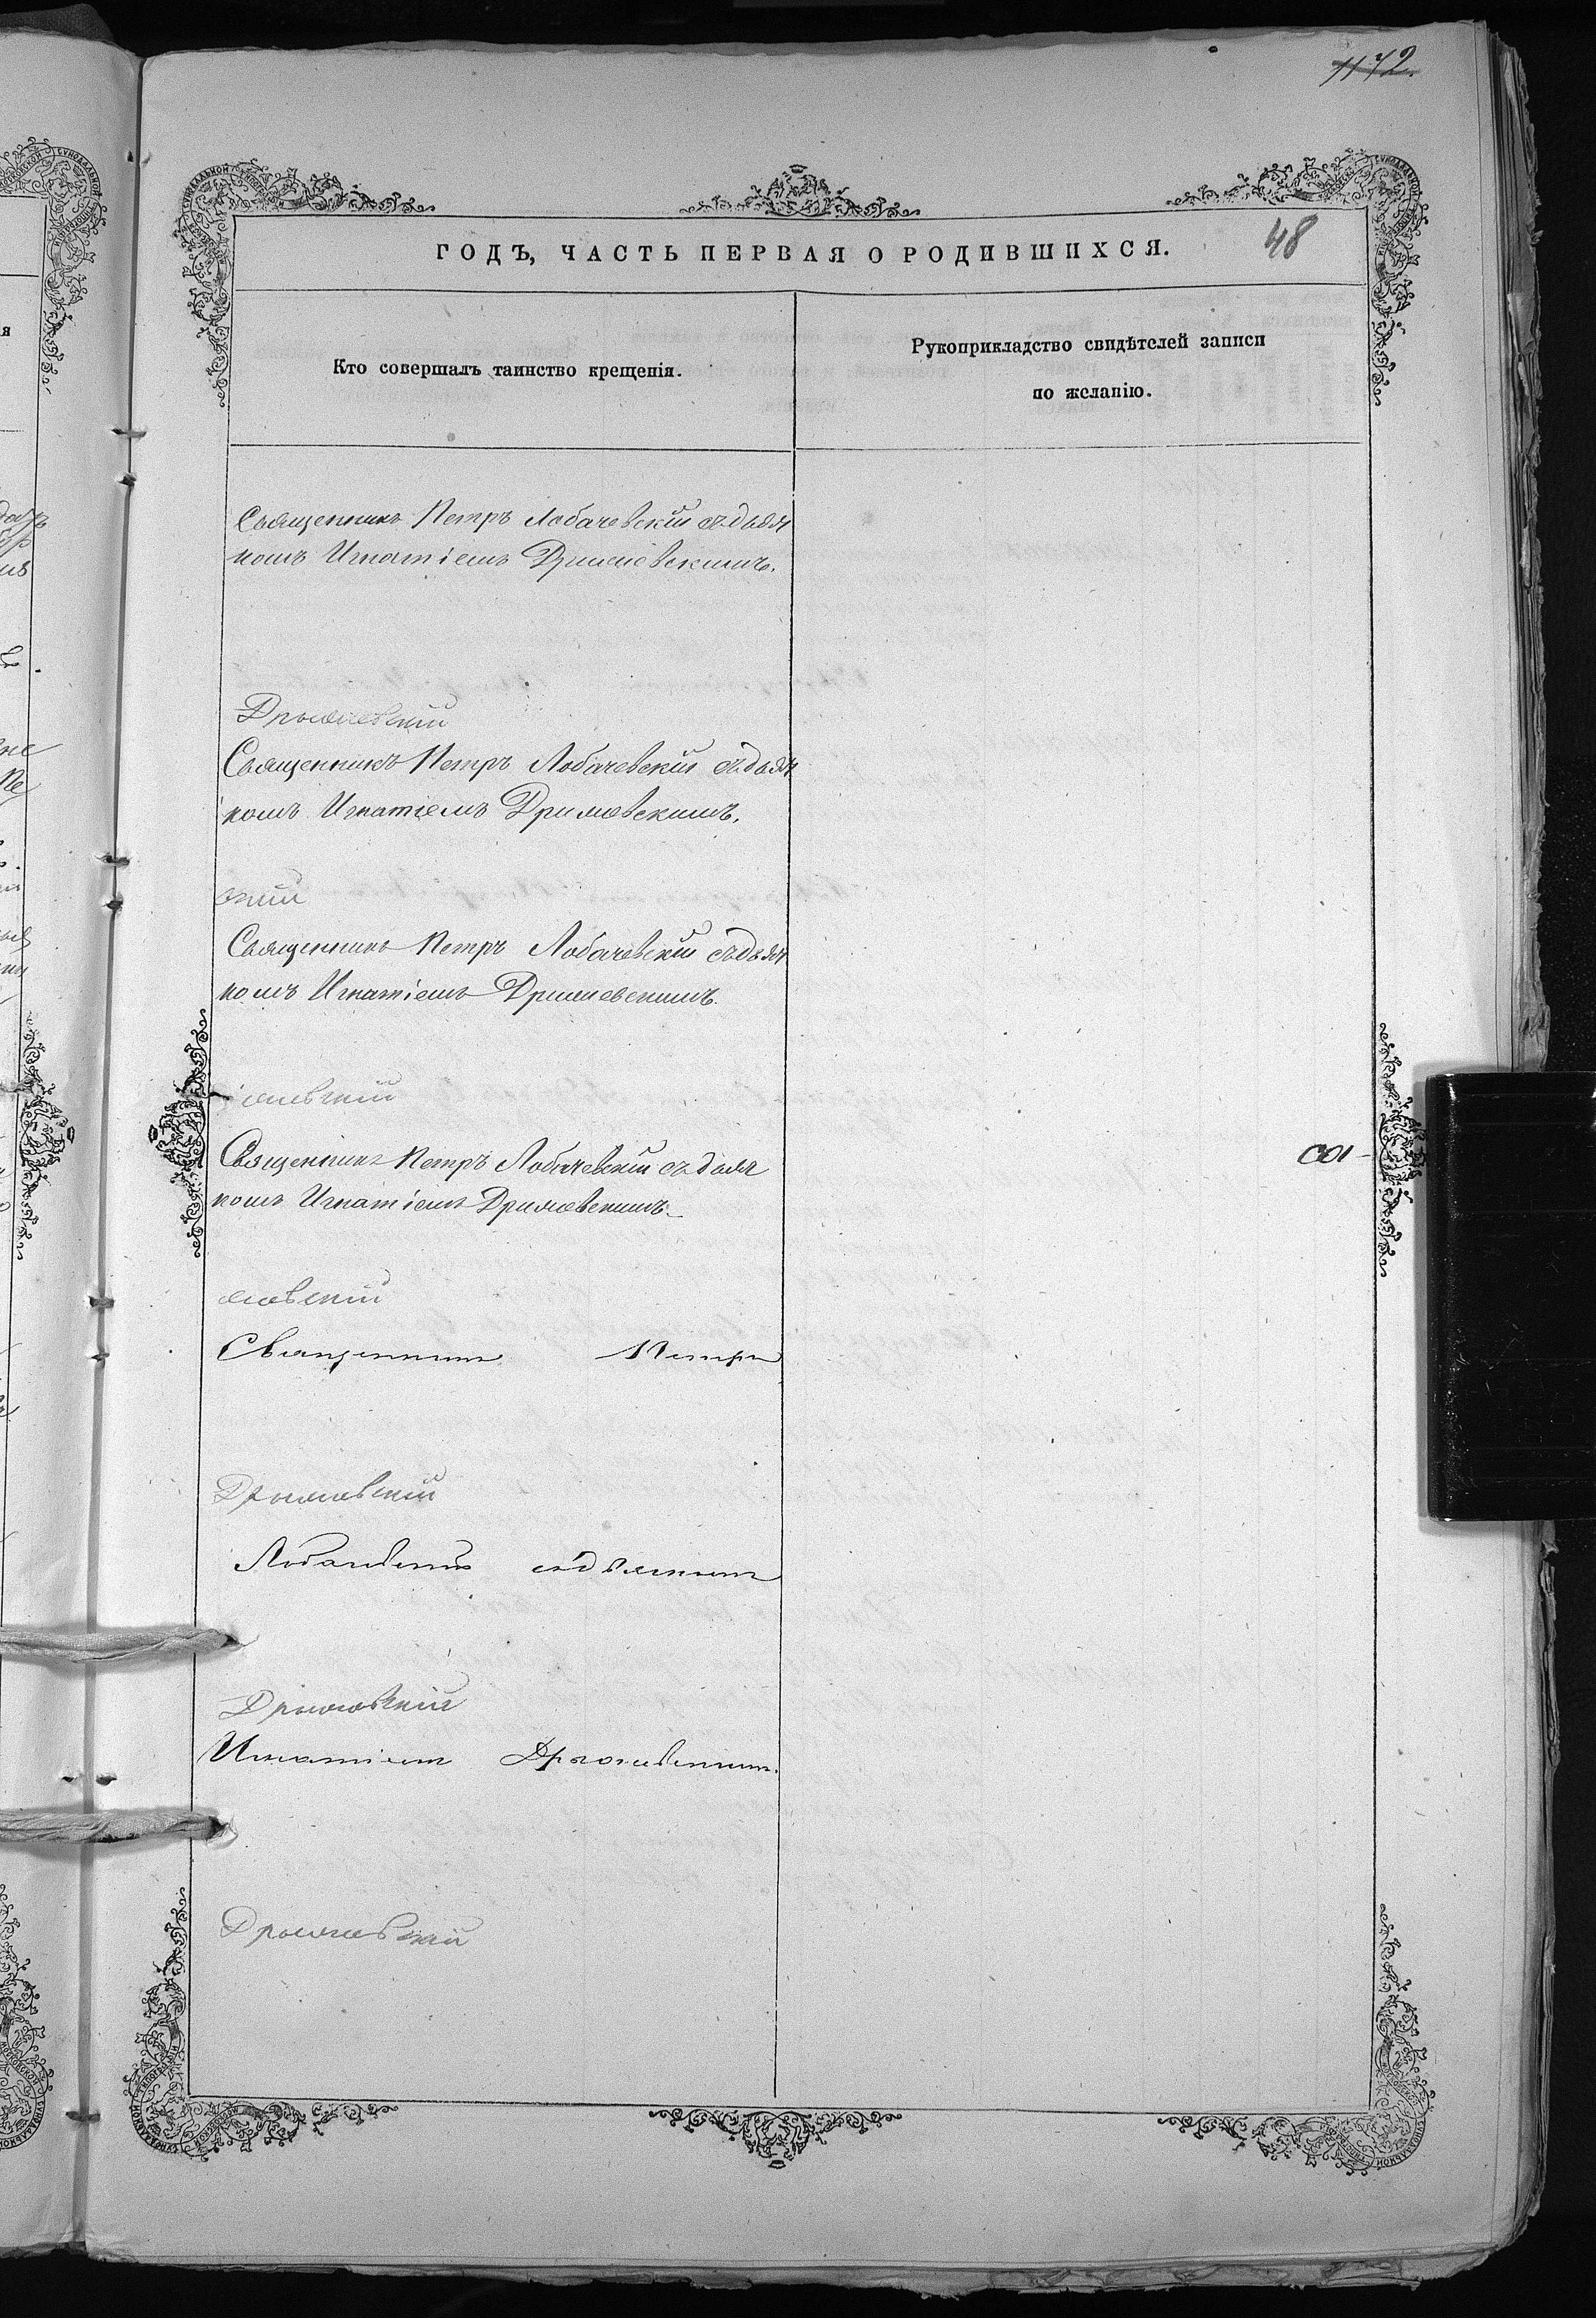 1172.
48
ГОДЪ, ЧАСТЬ ПЕРВАЯ О РОДИВШИХСЯ.
Кто совершалъ таинство крещенія.
Рукоприкладство свидѣтелей записи
по желанію.
Священникъ Петръ Лобачевскій съ дьяч
комъ Игнатіемъ Дримовскимъ.
Дрымовскій
Священникъ Петръ Лобачевскій съ дьяч
комъ Игнатіемъ Дримовскимъ.
скій
Священникъ Петръ Лобачевскій съ дьяч
комъ Игнатіемъ Дримовскимъ.
мовскій
Священникъ Петръ Лобачевскій съ дьяч
комъ Игнатіемъ Дримовскимъ.
мовскій
Священникъ Петръ
Дрымовскій
Лобачевскій съ дьячкомъ
Дрымовскій
Игнатіемъ Дрымовскимъ.
Дрымовскій